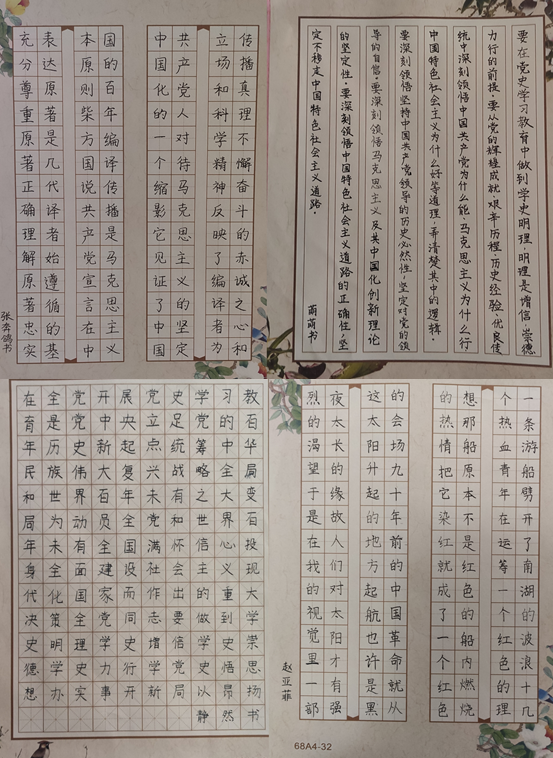 充分尊重原著正确理解原著忠实
表达原著是几代译者始遵循的基
本原则柴方国说共产党宣言在中
国的百年编译传播是马克思主义
中国化的一个缩影它见证了中国
共产党人对待马克思主义的坚定
立场和科学精神反映了编译者为
传播真理不懈奋斗的赤诚之心和
张奔鸽书
要在党史学习教育中做到学史明理,明理是增信、崇德
力行的前提。要从党的辉煌成就、艰辛历程、历史经验、优良传
统中深刻领悟中国共产党为什么能、马克思主义为什么行
中国特色社会主义为什么好等道理,弄清楚其中的逻辑。
要深刻领悟坚持中国共产党领导的历史必然性,坚定对党的领
导的自信。要深刻领悟马克思主义及其中国化创新理论
的坚定性。要深刻领悟中国特色社会主义道路的正确性,坚
定不移走中国特色社会主义道路。
萌萌书
在全党开展党史学习教
育是党中央立足党的石
年历史新起点统筹中华
民族伟大复兴战略全局
和世界百年未有之大变
局为动员全党和世界石
年未有全国满怀信心投
身全面建设社会主义现
代化国家而作出的重大
决策全党同志要做到学
史明理学史增信学史崇
德学史力行学党史悟思
想办实事开新局以昂扬
静然书
一条游船劈开了南湖的波浪十几
个热血青年在运等一个红色的理
想那船原本不是红色的船内燃烧
的热情把它染红就成了一个红色
的会场九十年前的中国革命就从
这太阳升起的地方起航也许是黑
夜太长的缘故人们对太阳才有强
烈的渴望于是在我的视觉里一部
赵亚菲
68A4-32